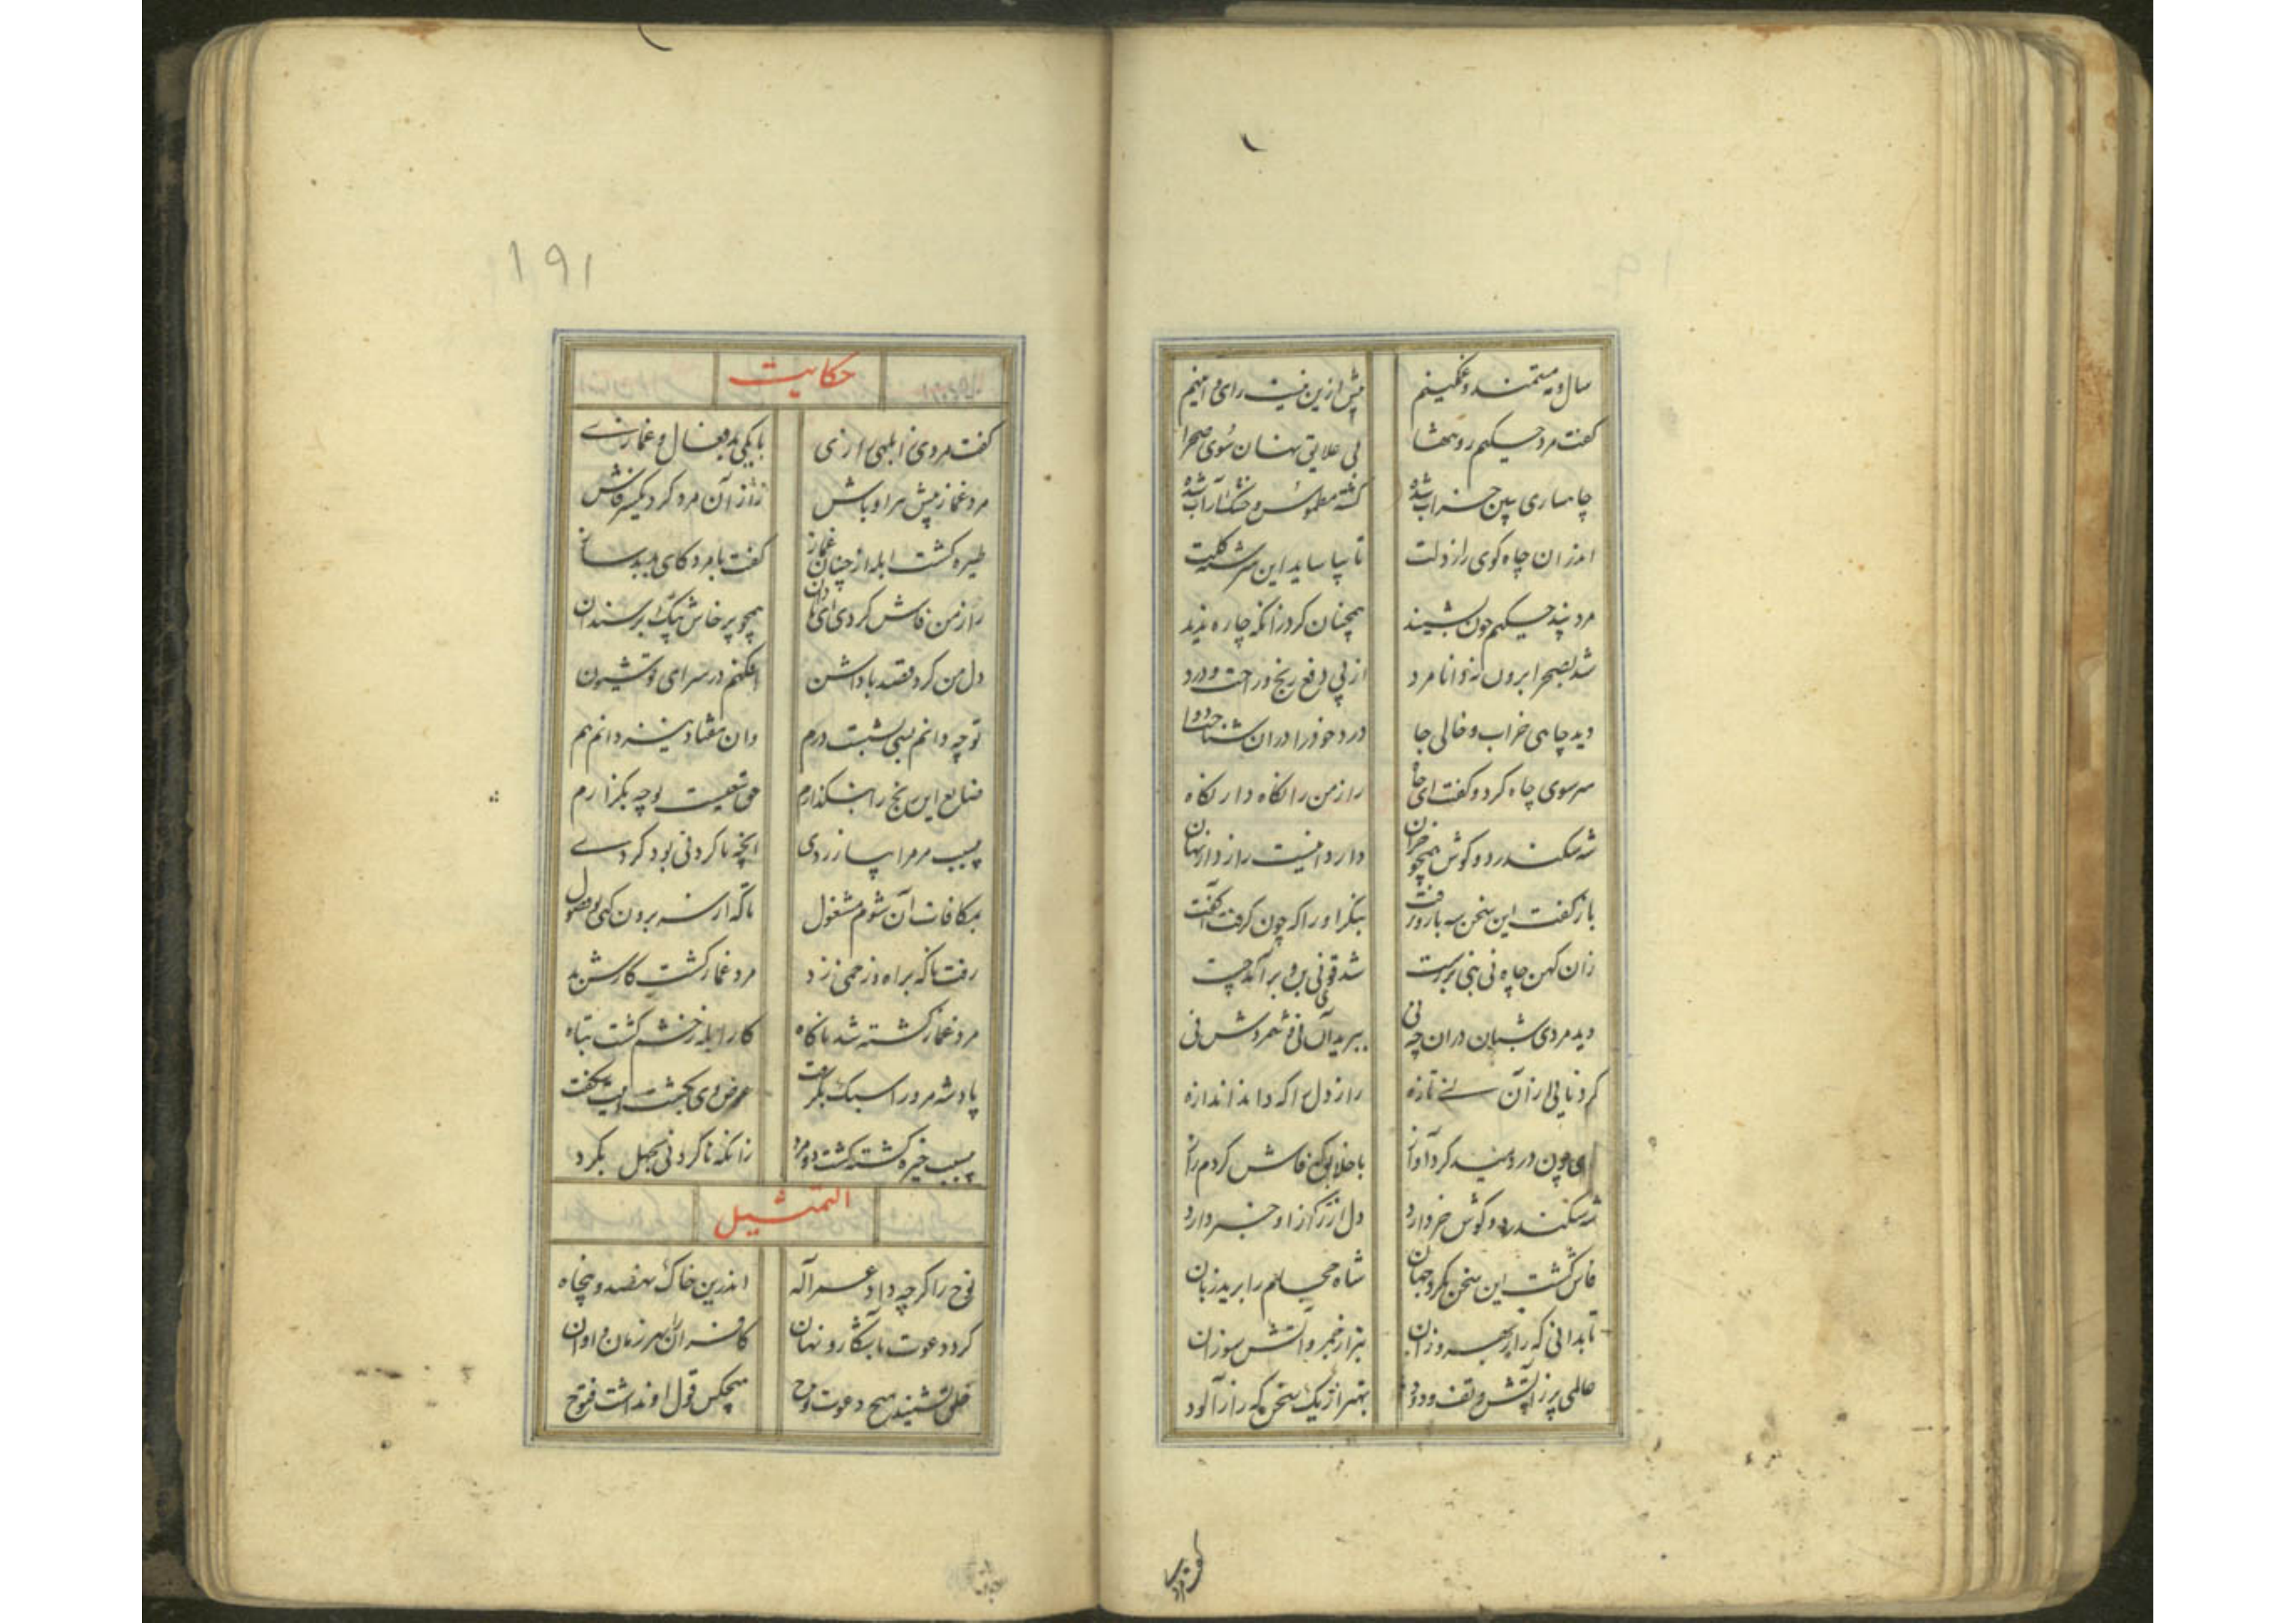 سال و مه مستمند و غمکینم پیش ازین نیست رای و آئینم
کفت مرد حکیم رو تنها بی علایق نهان سوی صحرا
چاهساری ببین خراب شده کشته مطموس و خشک از آب شده
اندران چاه کوی راز دلت تا بیاساید این سرشته کلت
مرد پند حکیم چون بشنید همچنان کرد زانکه چاره ندید
شد بصحرا برون نه دانا مرد از پی دفع رنج و راحت درد
دید چاهی خراب و خالی جا درد خود را دران شناخت دوا
سر سوی چاه کرد و کفت ای چاه راز من را نکاه دار نکاه
شه سکندر دو کوش همچو خران دارد اینست راز دار نهان
باز کفت این سخن سه بار و برفت بنکر او را که چون کرفت آکفت
زان کهن چاه نی بنی بر رست شد قوی نی بن و برآمد چست
دید مردی شبان دران چه نی ببرید آن نی و شمردش نی
کرد نایی از آن نی تازه راز دل را که داند اندازه
نای چون در دمید کرد آواز با خلایق که فاش کردم راز
شه سکندر دو کوش خر دارد دل ازین راز او خبر دارد
فاش کشت این سخن بکرد جهان شاه حجام را برید زبان
تا بدانی که راز بهروزان بتر از خمر و آتش سوزان
عالمی پر ز آتش و تف و دود بهتر از یک سخن که راز آلود
۱۹۱
حکایت
کفت مردی ز ابلهی رازی با یکی بد فعال و غمازی
مرد غماز پیش هر اوباش راز آن مرد کرد یکسر فاش
طیره کشت ابله از چنان غماز کفت با مرد کای بد بدساز
راز من فاش کردی ای نادان همچو پرخاش پتک بر سندان
دل من کرد قصد پاداشن افکنم در سرای تو شیون
تو چه دانم بسی بشب درم وان هفتاد نیز دانم هم
ضایع این رنج را بنکذارم حق سعیت بوجه بکزارم
بسبب مر مرا بیازردی آنچه ناکردنی بود کردی
بمکافات آن شوم مشغول تا که از سر برون کنی فضول
رفت ناکه براه و زخمی زد مرد غماز کشت کارش بد
مرد غماز کشته شد ناکاه کار ابله ز خشم کشت تباه
پادشه مرد را سبک بکرفت عوض وی بکشت اینت شکفت
بسبب خیره کشته کشت دو مرد زانکه ناکردنی بجهل بکرد
التمثیل
نوح را کرچه داد عمر اله اندرین خاک نهصد و پنجاه
کرد دعوت بآشکار و نهان کافران را بهر زمان و اوان
خلق نشنید هیچ دعوت نوح هیچکس قول او نداشت فتوح